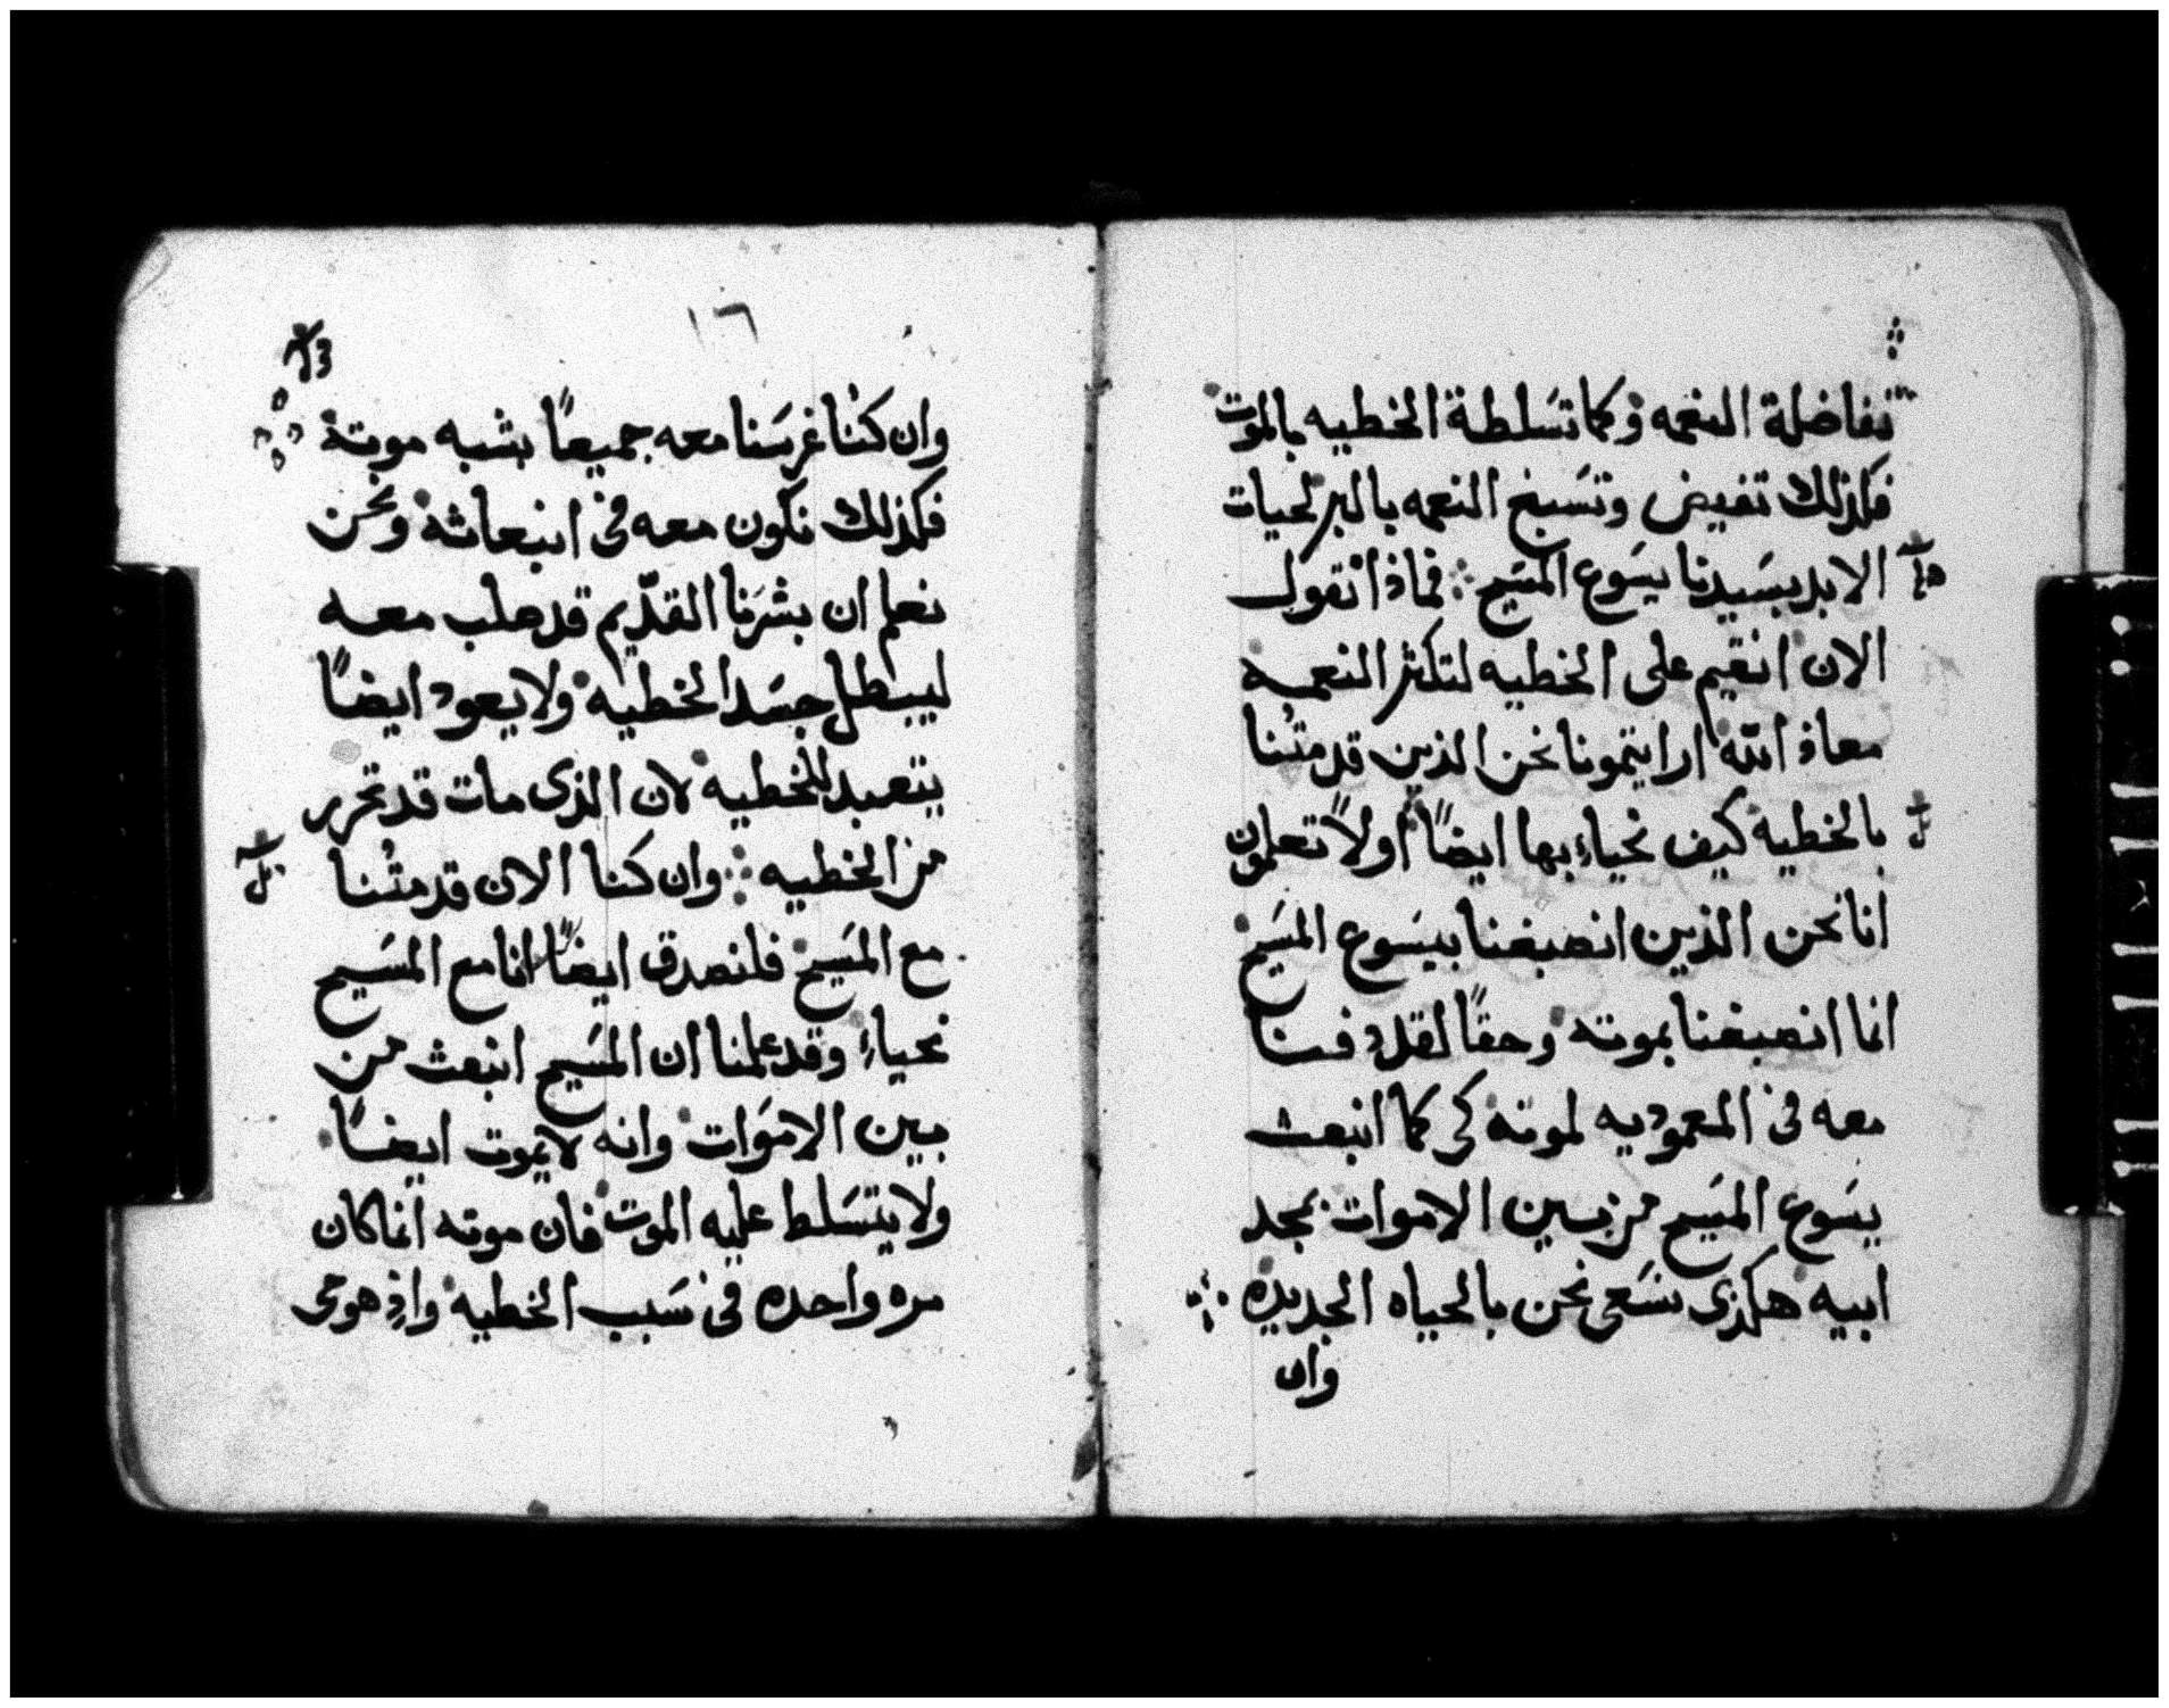 تفاضلة النعمه وكما تسَلطة الخطيه بالموت
فكذلك تفيض وتسَبغ النعمه بالبر لحيات
الابد بسَيدنا يسَوع المسَيح ܀ فماذا نقول
الان انقيم على الخطيه لتكثر النعمه
معاذ الله ارايتمونا نحن الذين قد متنا
بالخطيه كيف نحياء بها ايضاً اولاً تعلمون
انا نحن الذين انصبغنا بيسَوع المسَيح
انما انصبغنا بموته وحقاً لقد دفنا
معه في المعموديه لموته كي كما انبعث
يسَوع المسَيح من بين الاموات بمجد
ابيه هكذى نسَعى نحن بالحياه الجديده
وان
١٦
وان كنا غرسَنا معه جميعاً بشبه موتة
فكذلك نكون معه في انبعاثة ونحن
نعلم ان بشرَنا القدّيم قد صلب معه
ليبطل جسَد الخطيه ولا يعود ايضاً
يتعبد للخطيه لان الذى مات قد تحرر
من الخطيه ܀ وان كنا الان قد متنا
مع المسَيح فلنصدق ايضاً انا مع المسَيح
نحياء وقد علمنا ان المسَيح انبعث من
بين الاموَات وانه لا يموت ايضاً
ولا يتسَلط عليه الموت فان موته انما كان
مره واحده في سَبب الخطيه واذ هو حى